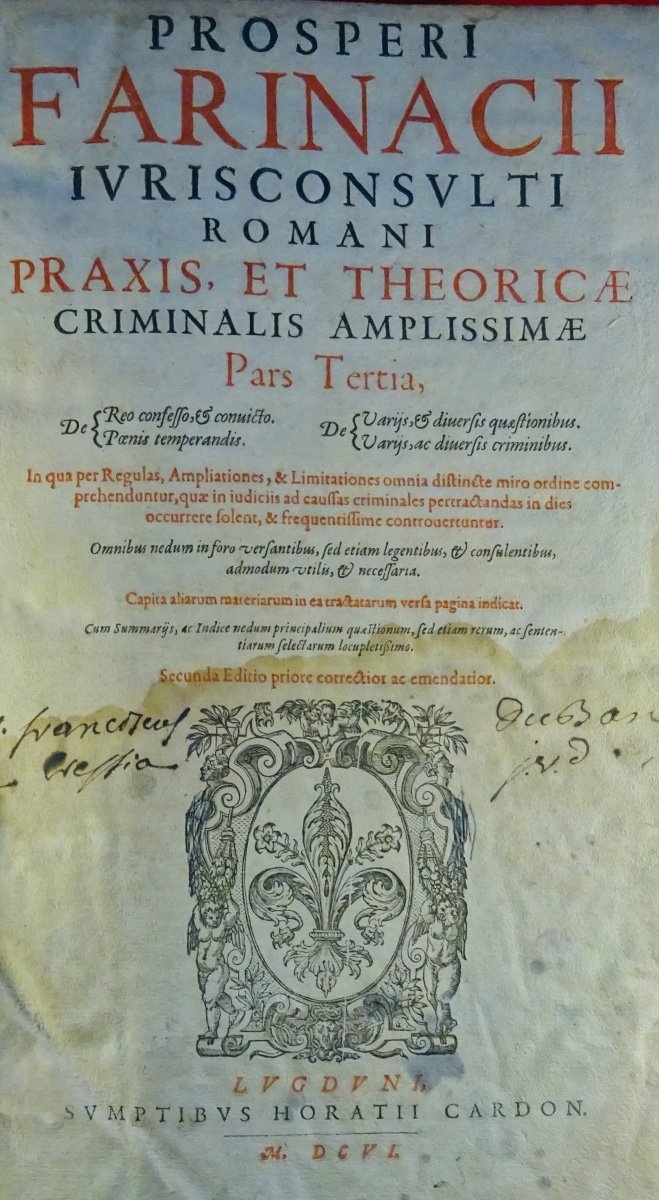 PROSPERI
FARINACII
IVRISCONSVLTI
ROMANI
PRAXIS, ET THEORICÆ
CRIMINALIS AMPLISSIMÆ
Pars Tertia,
De { Reo confeſſo, & conuicto.
Pœnis temperandis.
De { Varijs, & diuerſis quæſtionibus.
Varijs, ac diuerſis criminibus.
In qua per Regulas, Ampliationes, & Limitationes omnia diſtincte miro ordine com-
prehenduntur, quæ in iudiciis ad cauſſas criminales pertractandas in dies
occurrere ſolent, & frequentiſſime controuertuntur.
Omnibus nedum in foro verſantibus, ſed etiam legentibus, & conſulentibus,
admodum vtilis, & neceſſaria.
Capita aliarum materiarum in ea tractatarum verſa pagina indicat.
Cum Summarijs, ac Indice nedum principalium quæſtionum, ſed etiam rerum, ac ſenten-
tiarum ſelectarum locupletiſsimo.
Secunda Editio priore correctior ac emendatior.
franciscus
LVGDVNI,
SVMPTIBVS HORATII CARDON.
M. DCVI.